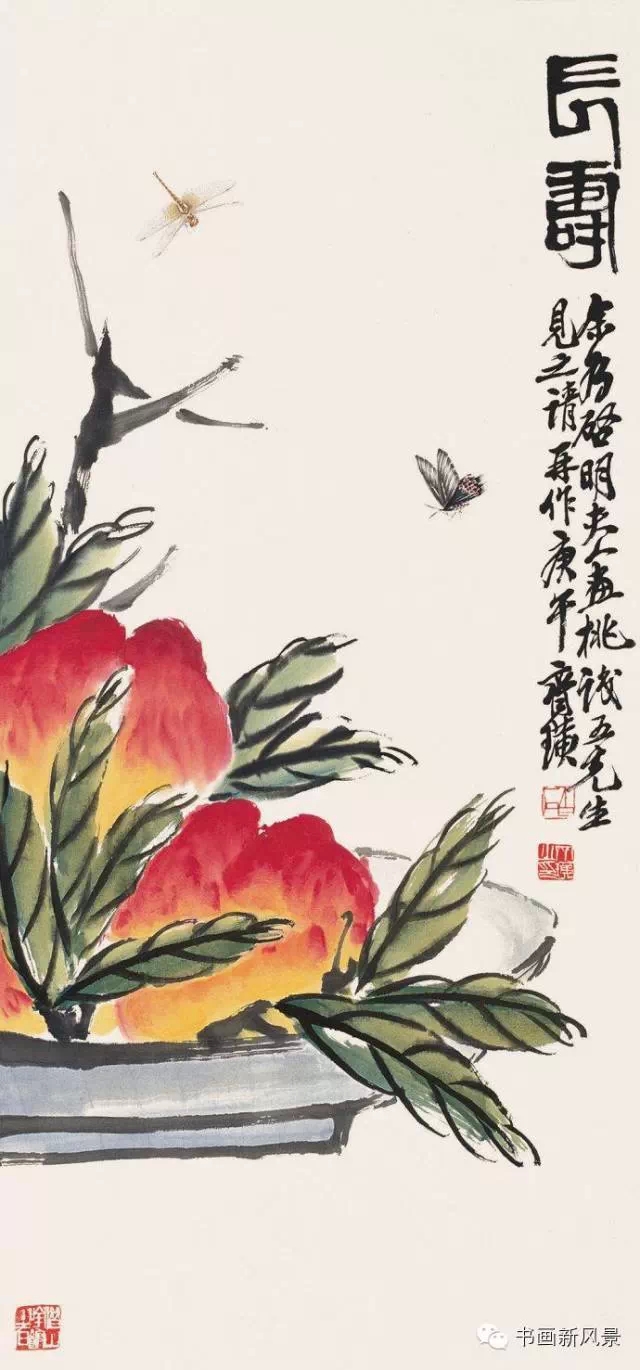 長壽
余为啓明夫人畫桃诚五先生
見之請再作庚午齊璜
木居士
书画新风景